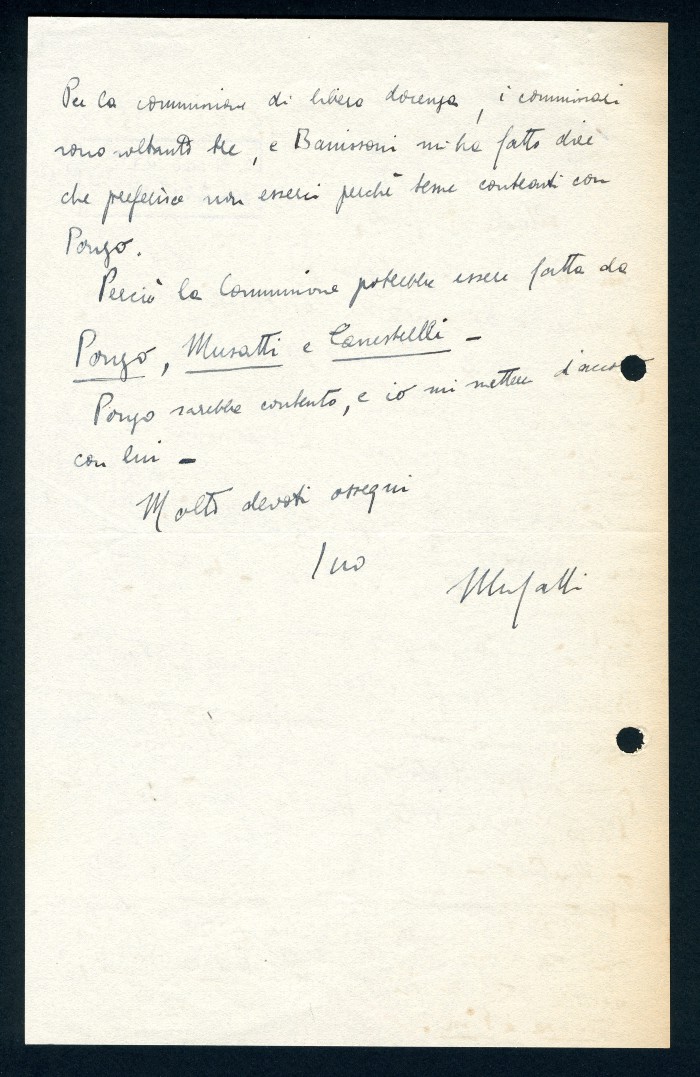 Per la commissione di libera docenza, i commissari
sono soltanto tre, e Banissoni mi ha fatto dire
che preferisce non esserci perchè teme contrasti con
Ponzo.
Perciò la Commissione potrebbe essere fatta da
Ponzo, Musatti e Canestrelli –
Ponzo sarebbe contento, e io mi metterei
con lui –
Molto devoti ossequi
Suo
Musatti